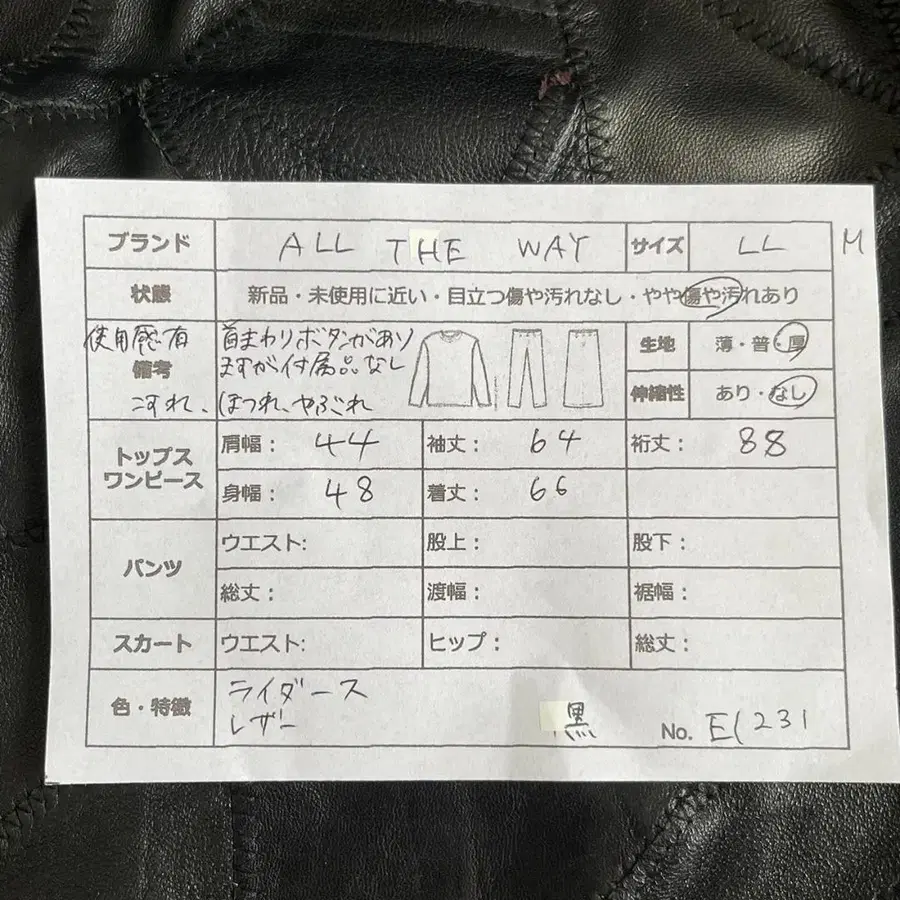 ブランド ALL THE WAY サイズ LL M
状態 新品・未使用に近い・目立つ傷や汚れなし・やや傷や汚れあり
使用感有 首まわりボタンがあり
備考 ますが付属品なし 生地 薄・普・厚
こすれ、ほつれ、やぶれ 伸縮性 あり・なし
トップス ワンピース 肩幅: 44 袖丈: 64 裄丈: 88
身幅: 48 着丈: 66
パンツ ウエスト: 股上: 股下:
総丈: 渡幅: 裾幅:
スカート ウエスト: ヒップ: 総丈:
色・特徴 ライダース
レザー 黒 No. E(231